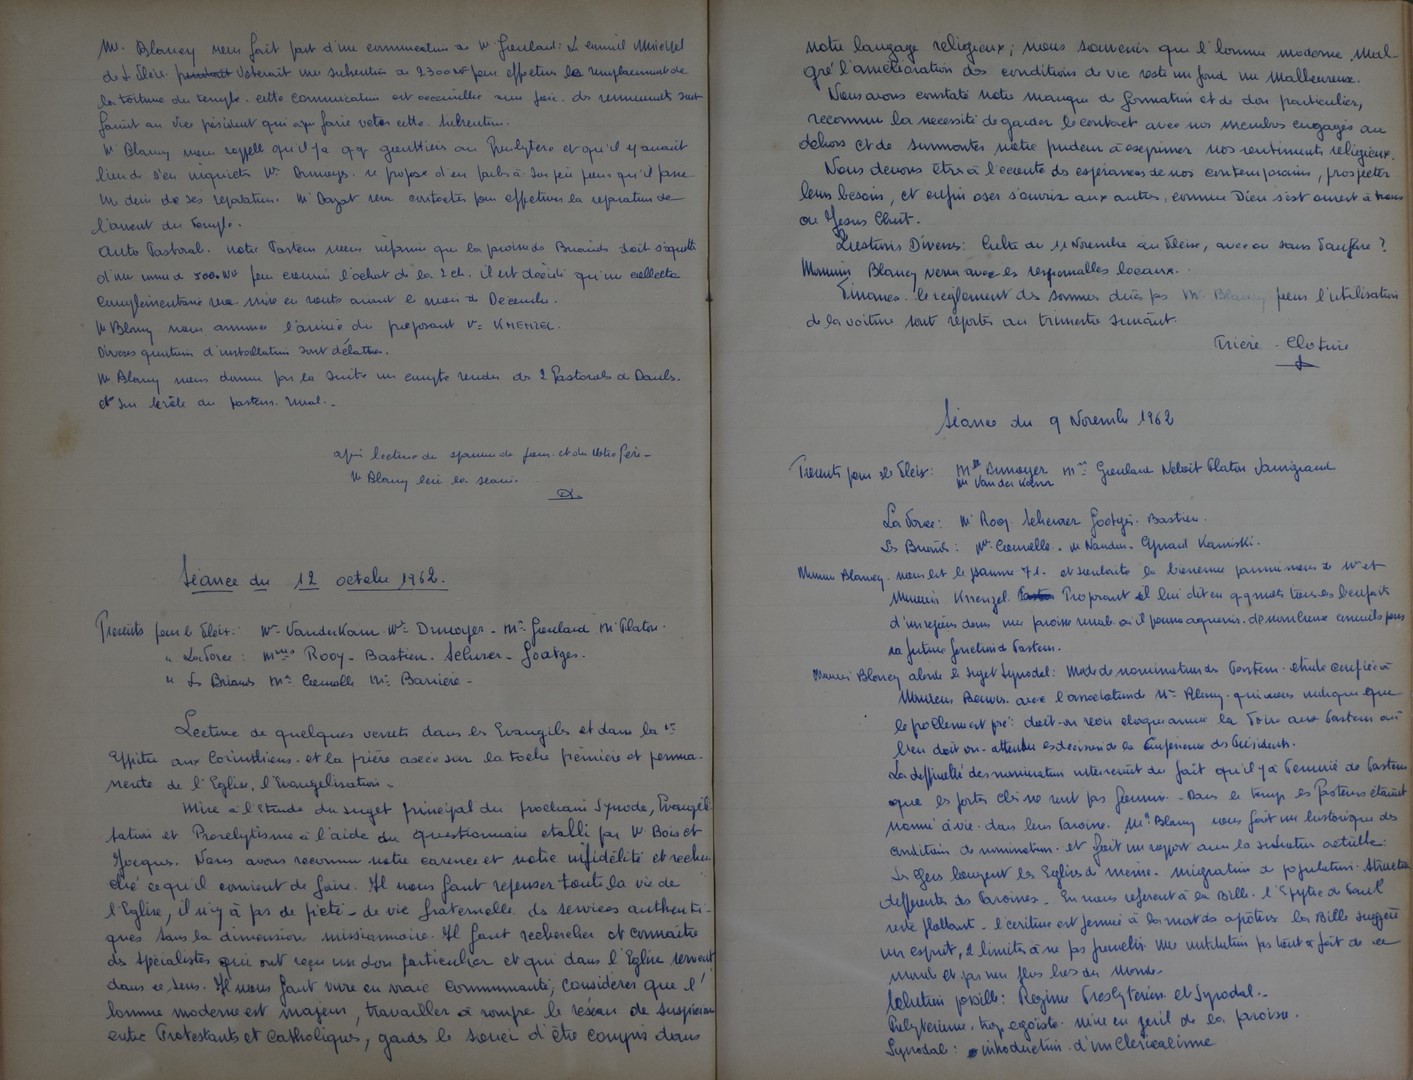 Mr. Blancy nous fait part d'une communication de Mr Greulard: Le conseil Municipal
de St Eleix voterait une subvention de 2300 NF pour effectuer le remplacement de
la toiture du temple. cette communication est accueillie avec joie. des remerciements sont
faits au vice président qui a pu faire voter cette subvention.
Mr Blancy nous rappelle qu'il y a qq gouttières au Presbytère et qu'il y aurait
lieu de s'en inquiéter Mr Dumoyer se propose d'en parler à
un devis de ses réparations. Mr Dazat sera contacter pour effectuer la réparation de
l'auvent du Temple.
Auto Pastoral. notre Pasteur nous informe que la paroisse des Briands doit s'acquitter
d'une somme de 500 NF pour couvrir l'achat de la 2 ch. il est décidé qu'une collecte
complémentaire sera mise en route avant le mois de Décembre.
Mr Blancy nous annonce l'arrivée du proposant Mr KNENZEL.
Diverses questions d'installation sont débattues.
Mr Blancy nous donne par la suite un compte rendu des 2 Pastorales de
et sur le rôle du pasteur rural.
après lecture du psaume de et du Notre Père
Mr Blancy lève la séance.
Séance du 12 octobre 1962.
Présents pour St Eleix: Mr Vanderkam Mr Dumoyer - Mr Greulard Mr Platon.
" La Force: Mrs Rooy - Bastien. Scheurer - Goatges.
" Les Briands Mr Cremolle Mr Barrière -
Lecture de quelques versets dans les Evangiles et dans la 1re
Epitre aux Corinthiens et la prière axée sur la tache première et perma-
nente de l'Eglise, l'Evangelisation.
Mise à l'Etude du sujet principal du prochain Synode, Evangéli
sation et Proselytisme à l'aide du questionnaire etabli par Mr Bois et
Jacques. Nous avons reconnu notre carence et notre infidélité et recher
ché ce qu'il convient de faire. Il nous faut repenser toute la vie de
l'Eglise, il n'y a pas de piété - de vie fraternelle. de services authenti-
ques sans la dimension missionnaire. Il faut rechercher et connaître
des spécialistes qui ont reçu un don particulier et qui dans l'Eglise servent
dans ce sens. Il nous faut vivre en vraie communauté, considérer que l'
homme moderne est majeur, travailler à rompre le réseau de suspicion
entre Protestants et Catholiques, garder le souci d'être compris dans
notre langage réligieux; nous souvenir que l'homme moderne, mal-
gré l'amélioration des conditions de vie reste au fond un malheureux.
Nous avons constaté notre manque de formation et de don particulier,
reconnu la nécessité de garder le contact avec nos membres engagés au
dehors et de surmonter notre pudeur à exprimer nos sentiments réligieux.
Nous devons être à l'écoute des espérances de nos contemporains, prospecter
leurs besoins, et enfin oser s'ouvrir aux autres, comme Dieu s'est ouvert à nous
en Jesus Christ.
Questions Diverses: Culte du 11 Novembre au Eleix, avec ou sans Fanfare?
Monsieur Blancy verra avec les responsables locaux.
Finances. le règlement des sommes dues par Mr Blancy pour l'utilisation
de la voiture sont reportés au trimestre suivant.
Prière - Cloture
Séance du 9 Novembre 1962
Présents pour St Eleix: Mlle Dumoyer Mrs Greulard Platon
Mr Vanderkam
La Force: Mr Rooy. Scheurer Goatges. Bastien.
Les Briands: Mr Cremolle. Mr Kamiski.
Monsieur Blancy. nous lit le psaume 71. et souhaite la bienvenue parmi nous de Mr et
Madame Knenzel. Proposant et lui dit en qq mots tous les bienfaits
d'un séjour dans une paroisse rurale où il pourra acquérir de nombreux conseils pour
sa future fonction de Pasteur.
Monsieur Blancy aborde le sujet Synodal: Mode de nomination des Pasteurs. étude confiée à
Monsieur avec l'association de Mr Blancy. qui nous indique que
le problème est posé: doit-on revoir chaque année la ou
bien doit on attendre les décisions de la Conférence des Présidents.
La difficulté des nominations intervient du fait qu'il y a Pénurie de Pasteurs
que les postes clés ne sont pas fournis. Dans le temps les Pasteurs étaient
nommé à vie. dans leur Paroisse. Mr Blancy nous fait un historique des
conditions de nomination. et fait un rapport avec la situation actuelle:
Les gens bougent les Eglises de même. migration de population. Structures
différentes des Paroisses. En nous référent à la Bible. l'Epitre de Paul
reste flottant. l'écriture est fermée à la mort des apôtres la Bible suggère
un esprit, 2 limites à ne pas franchir une institution pas tout à fait de ce
monde et pas non plus hors du monde.
Solution possible: Régime Presbyterien et Synodal.
Presbyterienne. trop egoïste. mise en péril de la paroisse.
Synodal: introduction d'un Clericalisme